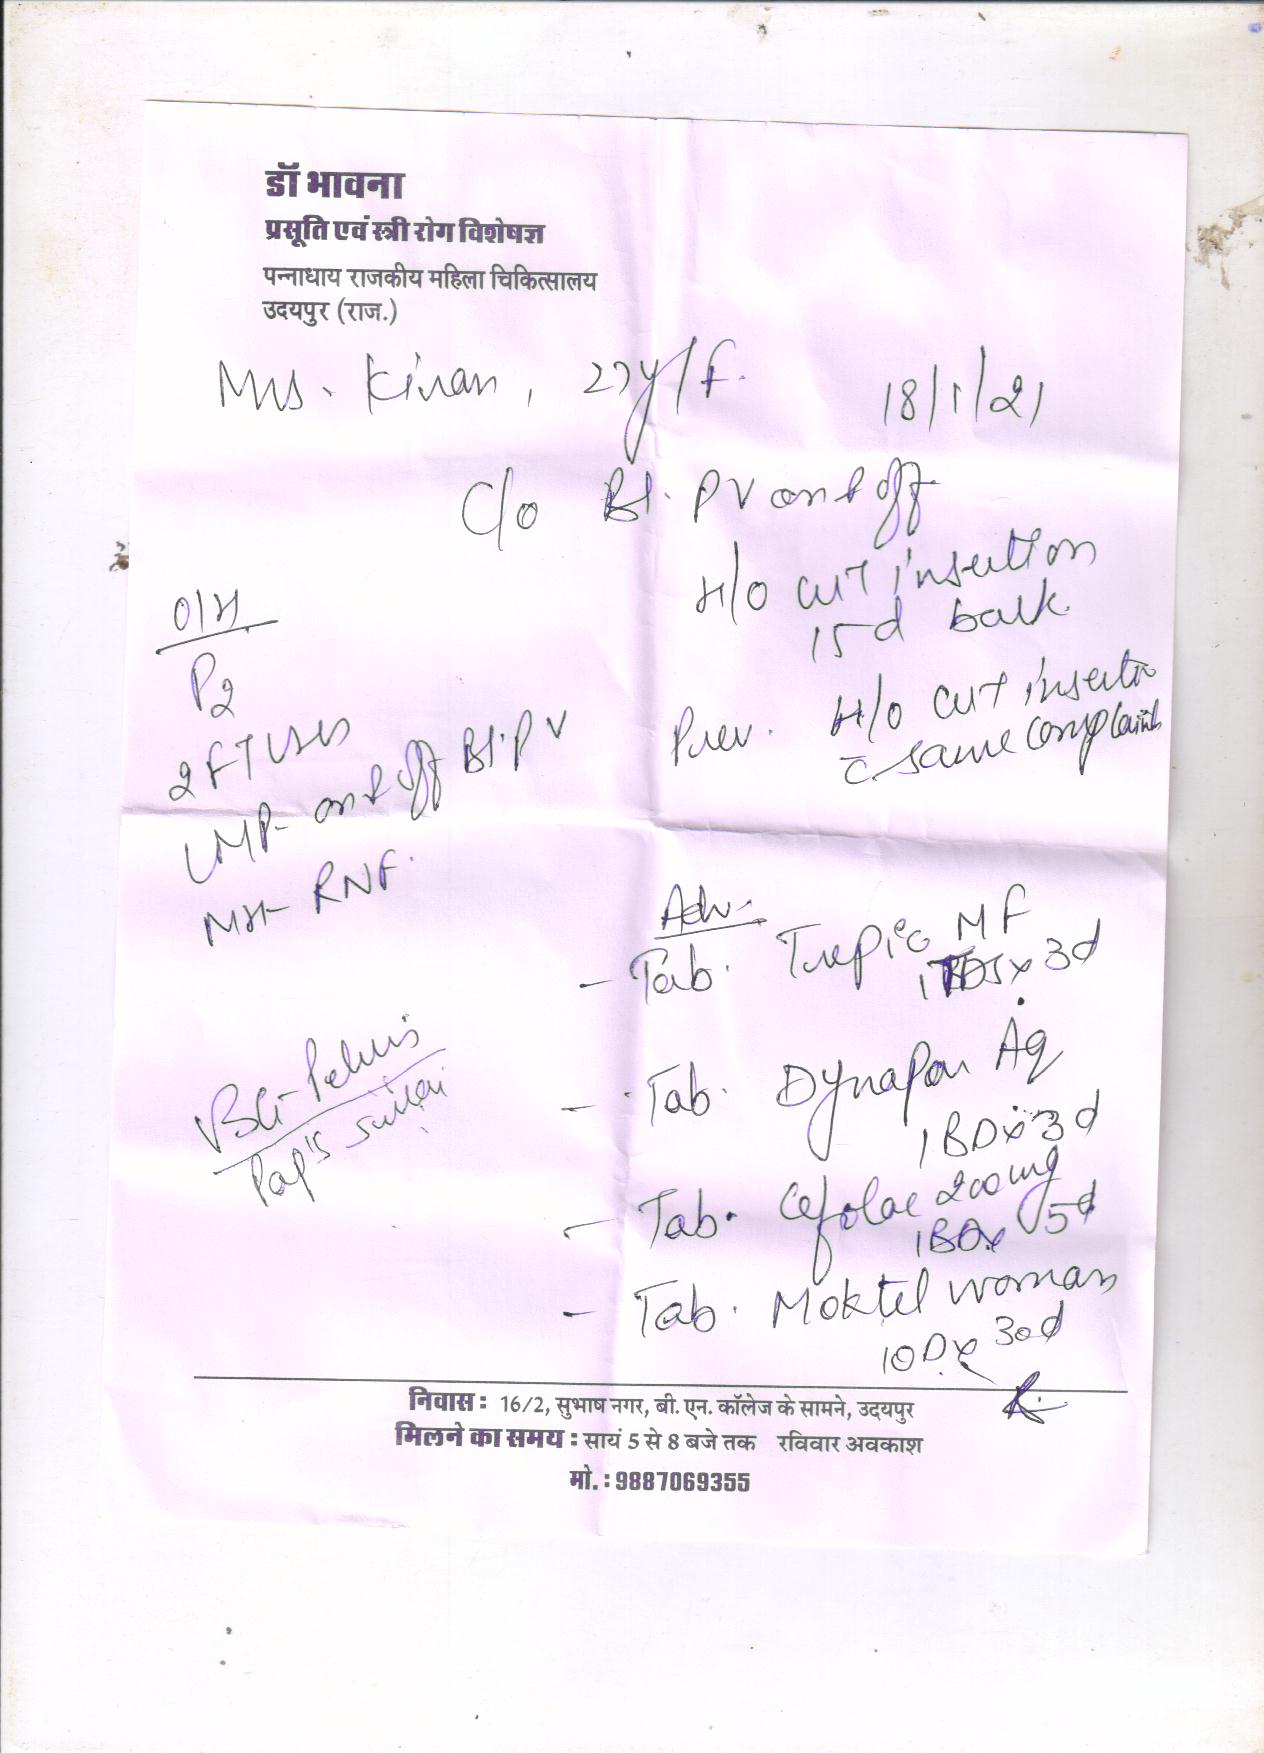 डॉ भावना
प्रसूति एवं स्त्री रोग विशेषज्ञ
पन्नाधाय राजकीय महिला चिकित्सालय
उदयपुर (राज.)
Mrs. Kiran, 27y/F.
18/1/21
C/o Bl. PV on & off
H/o CUT insertion
15d back
Prev. H/o CUT insertion
c̄ same complaints
O/H
P2
2 FT
LMP- on & off Bl. PV
MH- RNF.
Pelvis
Pap's
Adv-
- Tab. MF
1 x 3d
- Tab. Dynapar AQ
1 BD x 3d
- Tab. 200mg
1 BD x 5d
- Tab. Moktel Woman
1 OD x 30d
निवास : 16/2, सुभाष नगर, बी. एन. कॉलेज के सामने, उदयपुर
मिलने का समय : सायं 5 से 8 बजे तक रविवार अवकाश
मो. : 9887069355